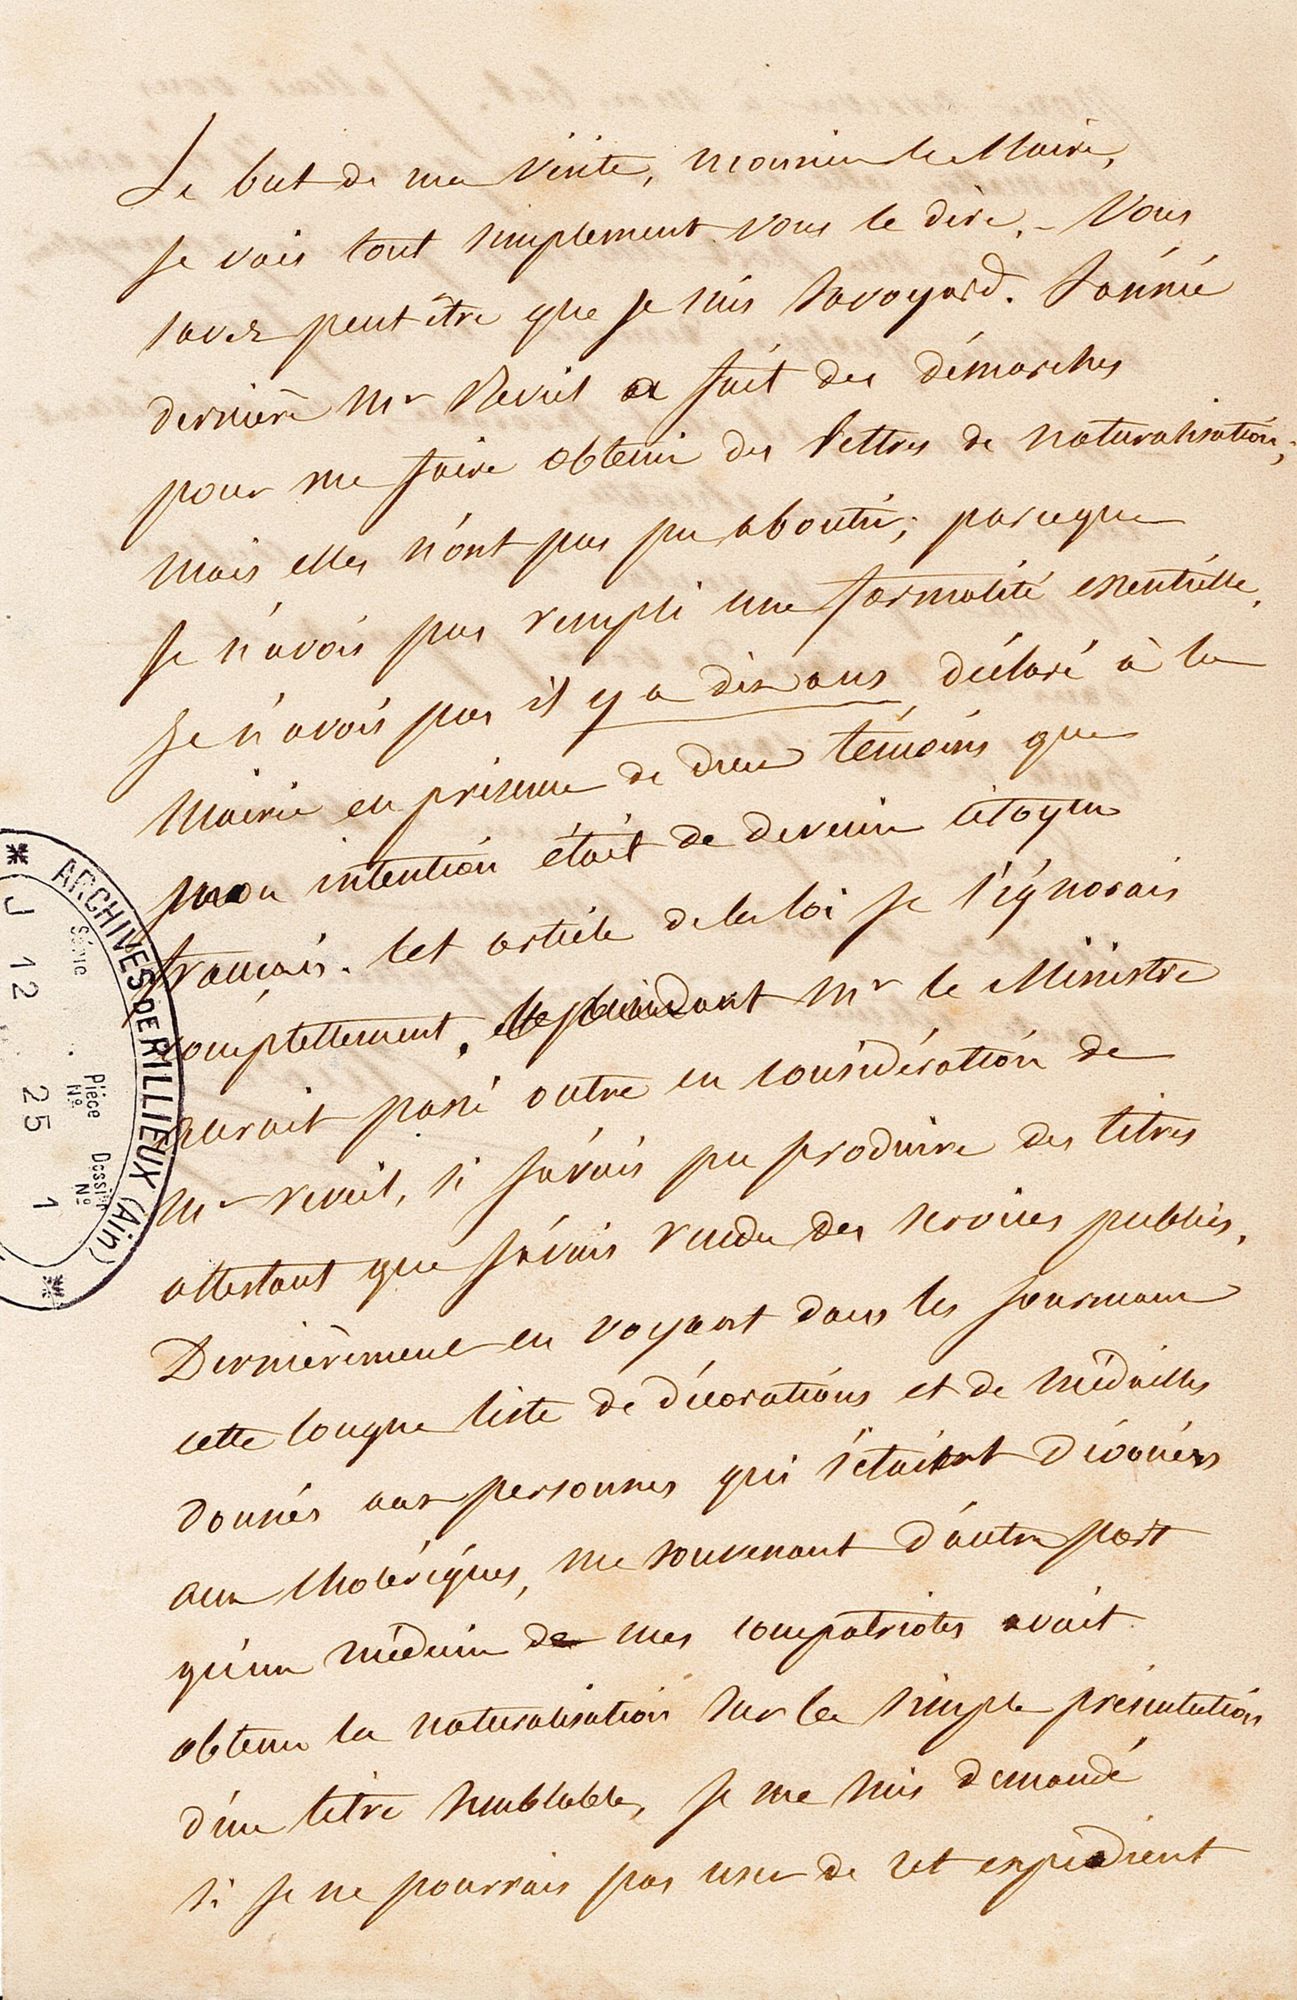 Le but de ma visite, monsieur le Maire,
je vais tout simplement vous le dire. - Vous
savez peut être que je suis savoyard. L'année
dernière Mr Revail a fait des démarches
pour me faire obtenir des lettres de naturalisation;
mais elles n'ont pas pu aboutir; parceque
je n'avais pas rempli une formalité essentielle.
Je n'avais pas il y a dix ans déclaré à la
mairie en présence de deux témoins que
mon intention était de devenir citoyen
français. Cet article de la loi je l'ignorais
complettement. Cependant Mr le Ministre
aurait passé outre en considération de
Mr revail, si j'avais pu produire des titres
attestant que j'avais rendu des services publics.
Dernièrement en voyant dans les journaux
cette longue liste de décorations et de médailles
donnés aux personnes qui s'étaient dévouées
aux cholériques, me souvenant d'autre part
qu'un médecin de mes compatriotes avait
obtenu la naturalisation sur la simple présentation
d'un titre semblable, je me suis demandé
si je ne pourrais pas user de cet expédient
ARCHIVES DE RILLIEUX (Ain)
Série
J 12
Pièce No
25
Dossier No
1